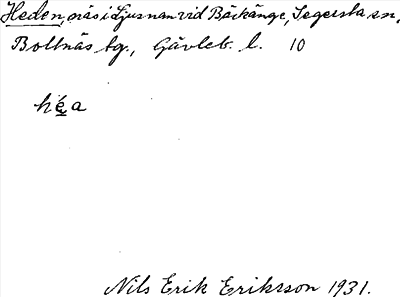 Heden, näs i Ljusnan vid Bäckänge, Segersta sn,
Bollnäs tg., Gävleb. l. 10
hé̱a
Nils Erik Eriksson 1931.